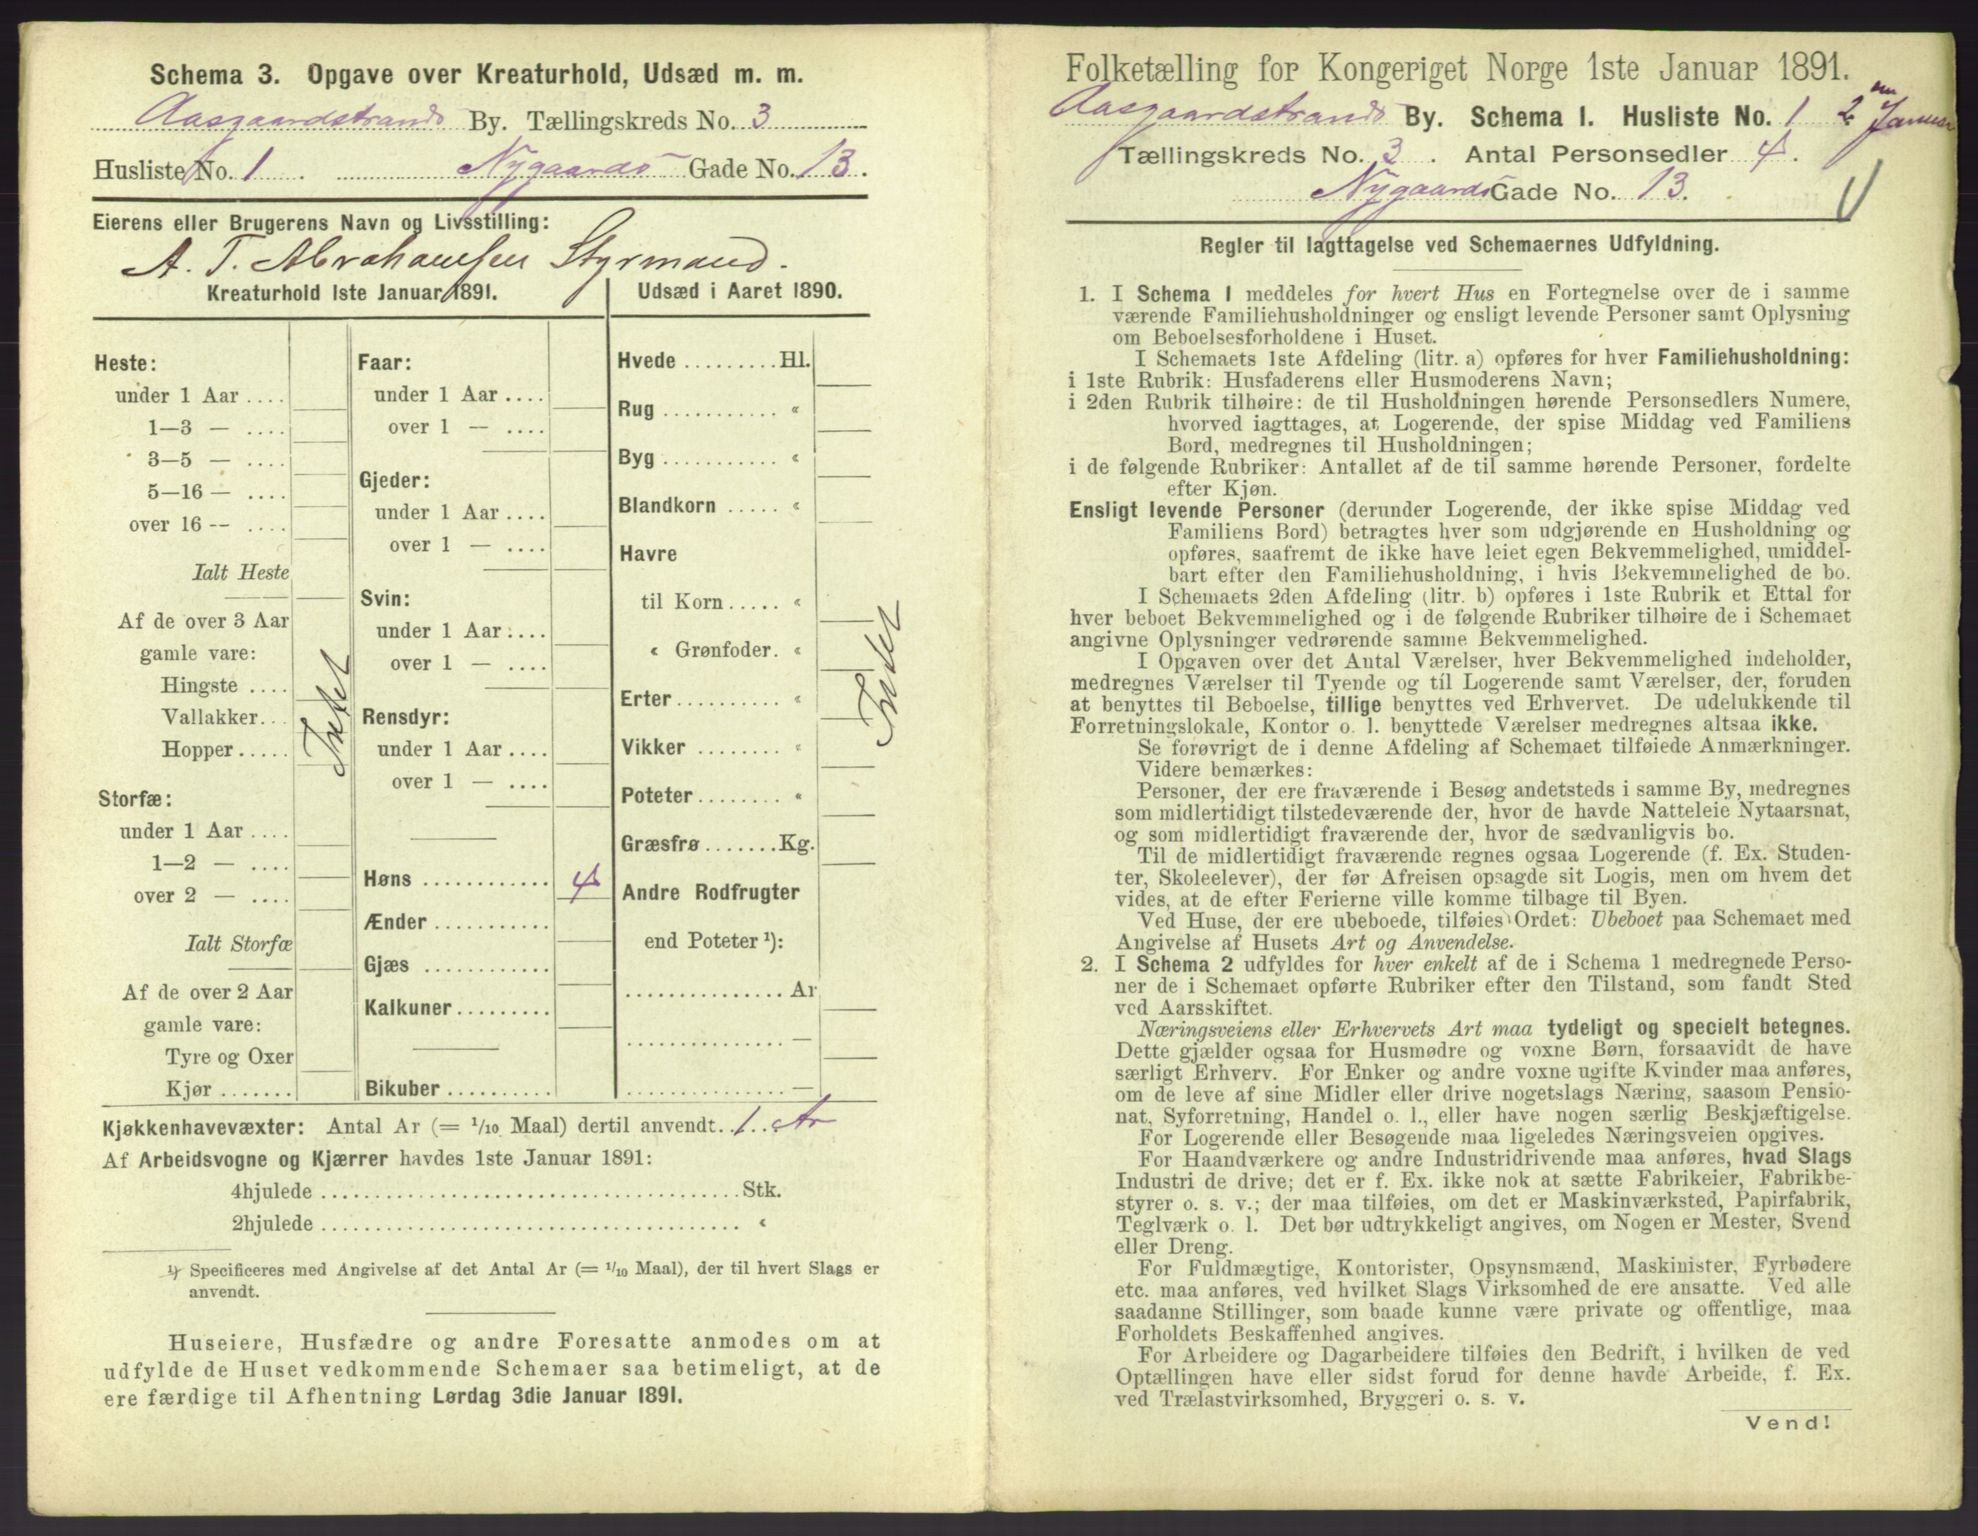 Schema 3. Opgave over Kreaturhold, Udsæd m. m.
Aasgaardstrands By. Tællingskreds No. 3
Husliste No. 1 . Nygaards Gade No. 13.
Eierens eller Brugerens Navn og Livsstilling:
A. T. Abrahamsen Styrmand.
Kreaturhold 1ste Januar 1891.
Heste:
under 1 Aar ....
1—3 — ....
3—5 — ....
5—16 — ....
over 16 -- ....
Ialt Heste
Af de over 3 Aar
gamle vare:
Hingste ....
Vallakker...
Hopper.....
Intet
Storfæ:
under 1 Aar ....
1—2 — ....
over 2 — ....
Ialt Storfæ
Af de over 2 Aar
gamle vare:
Tyre og Oxer
Kjør .......
Faar:
under 1 Aar ....
over 1 — ....
Gjeder:
under 1 Aar ....
over 1 — ....
Svin:
under 1 Aar ....
over 1 — ....
Rensdyr:
under 1 Aar ....
over 1 — ....
Høns ............ 4
Ænder ...........
Gjæs ............
Kalkuner.........
Bikuber..........
Udsæd i Aaret 1890.
Hvede .........Hl.
Rug ........... "
Byg ........... "
Blandkorn ..... "
Havre
til Korn..... "
" Grønfoder. "
Erter.......... "
Vikker ........ "
Poteter........ "
Græsfrø.......Kg.
Andre Rodfrugter
end Poteter ¹):
...............Ar
............... —
............... —
Intet
Kjøkkenhavevæxter: Antal Ar (= 1/10 Maal) dertil anvendt. 1 Ar
Af Arbeidsvogne og Kjærrer havdes 1ste Januar 1891:
4hjulede ........................................Stk.
2hjulede ........................................ "
¹) Specificeres med Angivelse af det Antal Ar (= 1/10 Maal), der til hvert Slags er
anvendt.
Huseiere, Husfædre og andre Foresatte anmodes om at
udfylde de Huset vedkommende Schemaer saa betimeligt, at de
ere færdige til Afhentning Lørdag 3die Januar 1891.
Folketælling for Kongeriget Norge 1ste Januar 1891.
Aasgaardstrands By. Schema I. Husliste No. 1 2 Januar
Tællingskreds No. 3 . Antal Personsedler 4.
Nygaards Gade No. 13.
Regler til Iagttagelse ved Schemaernes Udfyldning.
1. I Schema I meddeles for hvert Hus en Fortegnelse over de i samme
værende Familiehusholdninger og ensligt levende Personer samt Oplysning
om Beboelsesforholdene i Huset.
I Schemaets 1ste Afdeling (litr. a) opføres for hver Familiehusholdning:
i 1ste Rubrik: Husfaderens eller Husmoderens Navn;
i 2den Rubrik tilhøire: de til Husholdningen hørende Personsedlers Numere,
hvorved iagttages, at Logerende, der spise Middag ved Familiens
Bord, medregnes til Husholdningen;
i de følgende Rubriker: Antallet af de til samme hørende Personer, fordelte
efter Kjøn.
Ensligt levende Personer (derunder Logerende, der ikke spise Middag ved
Familiens Bord) betragtes hver som udgjørende en Husholdning og
opføres, saafremt de ikke have leiet egen Bekvemmelighed, umiddel-
bart efter den Familiehusholdning, i hvis Bekvemmelighed de bo.
I Schemaets 2den Afdeling (litr. b) opføres i 1ste Rubrik et Ettal for
hver beboet Bekvemmelighed og i de følgende Rubriker tilhøire de i Schemaet
angivne Oplysninger vedrørende samme Bekvemmelighed.
I Opgaven over det Antal Værelser, hver Bekvemmelighed indeholder,
medregnes Værelser til Tyende og til Logerende samt Værelser, der, foruden
at benyttes til Beboelse, tillige benyttes ved Erhvervet. De udelukkende til
Forretningslokale, Kontor o. l. benyttede Værelser medregnes altsaa ikke.
Se forøvrigt de i denne Afdeling af Schemaet tilføiede Anmærkninger.
Videre bemærkes:
Personer, der ere fraværende i Besøg andetsteds i samme By, medregnes
som midlertidigt tilstedeværende der, hvor de havde Natteleie Nytaarsnat,
og som midlertidigt fraværende der, hvor de sædvanligvis bo.
Til de midlertidigt fraværende regnes ogsaa Logerende (f. Ex. Studen-
ter, Skoleelever), der før Afreisen opsagde sit Logis, men om hvem det
vides, at de efter Ferierne ville komme tilbage til Byen.
Ved Huse, der ere ubeboede, tilføies Ordet: Ubeboet paa Schemaet med
Angivelse af Husets Art og Anvendelse.
2. I Schema 2 udfyldes for hver enkelt af de i Schema 1 medregnede Perso-
ner de i Schemaet opførte Rubriker efter den Tilstand, som fandt Sted
ved Aarsskiftet.
Næringsveiens eller Erhvervets Art maa tydeligt og specielt betegnes.
Dette gjælder ogsaa for Husmødre og voxne Børn, forsaavidt de have
særligt Erhverv. For Enker og andre voxne ugifte Kvinder maa anføres,
om de leve af sine Midler eller drive nogetslags Næring, saasom Pensio-
nat, Syforretning, Handel o. l., eller have nogen særlig Beskjæftigelse.
For Logerende eller Besøgende maa ligeledes Næringsveien opgives.
For Haandværkere og andre Industridrivende maa anføres, hvad Slags
Industri de drive; det er f. Ex. ikke nok at sætte Fabrikeier, Fabrikbe-
styrer o. s. v.; der maa tilføies, om det er Maskinværksted, Papirfabrik,
Teglværk o. l. Det bør udtrykkeligt angives, om Nogen er Mester, Svend
eller Dreng.
For Fuldmægtige, Kontorister, Opsynsmænd, Maskinister, Fyrbødere
etc. maa anføres, ved hvilket Slags Virksomhed de ere ansatte. Ved alle
saadanne Stillinger, som baade kunne være private og offentlige, maa
Forholdets Beskaffenhed angives.
For Arbeidere og Dagarbeidere tilføies den Bedrift, i hvilken de ved
Optællingen have eller sidst forud for denne havde Arbeide, f. Ex.
ved Trælastvirksomhed, Bryggeri o. s. v.
Vend!